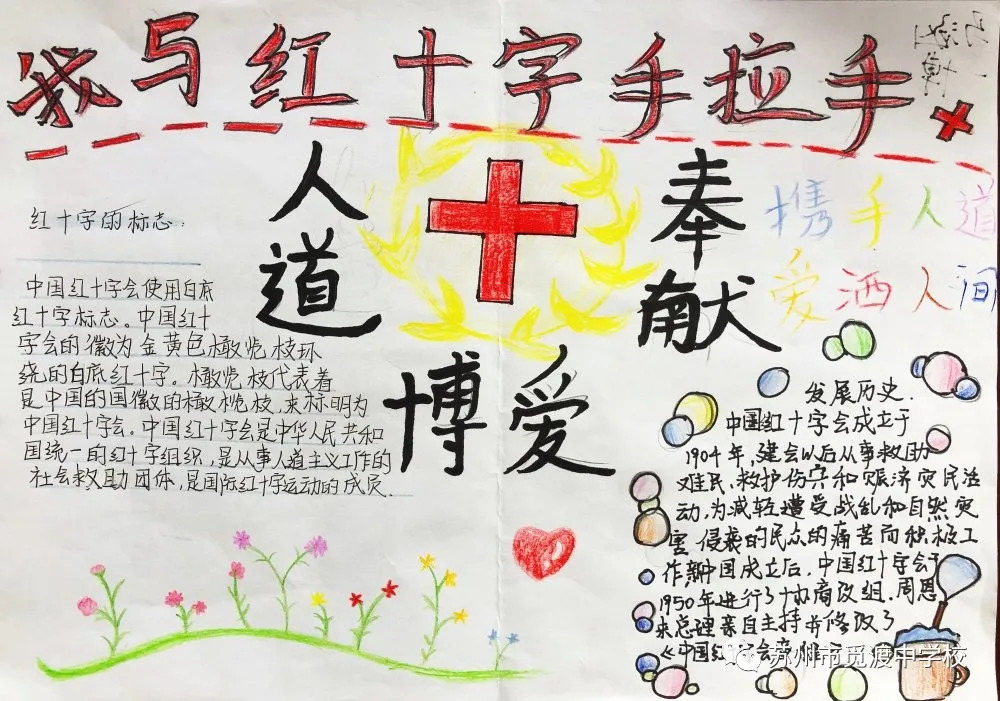 我与红十字手拉手
人道
博爱
奉献
携手人道
爱洒人间
红十字的标志:
中国红十字会使用白底
红十字标志。中国红十
字会的徽为金黄色橄榄枝环
绕的白底红十字。橄榄枝代表着
是中国的国徽的橄榄枝,来标明为
中国红十字会。中国红十字会是中华人民共和
国统一的红十字组织,是从事人道主义工作的
社会救助团体,是国际红十字运动的成员.
发展历史.
中国红十字会成立于
1904年,建会以后从事救助
难民、救护伤兵和赈济灾民活
动,为减轻遭受战乱和自然灾
害侵袭的民众的痛苦而积极工
作新中国成立后,中国红十字会于
1950年进行了协商改组.周恩
来总理亲自主持并修改了
《中国红十字会章程
苏州市觅渡中学校